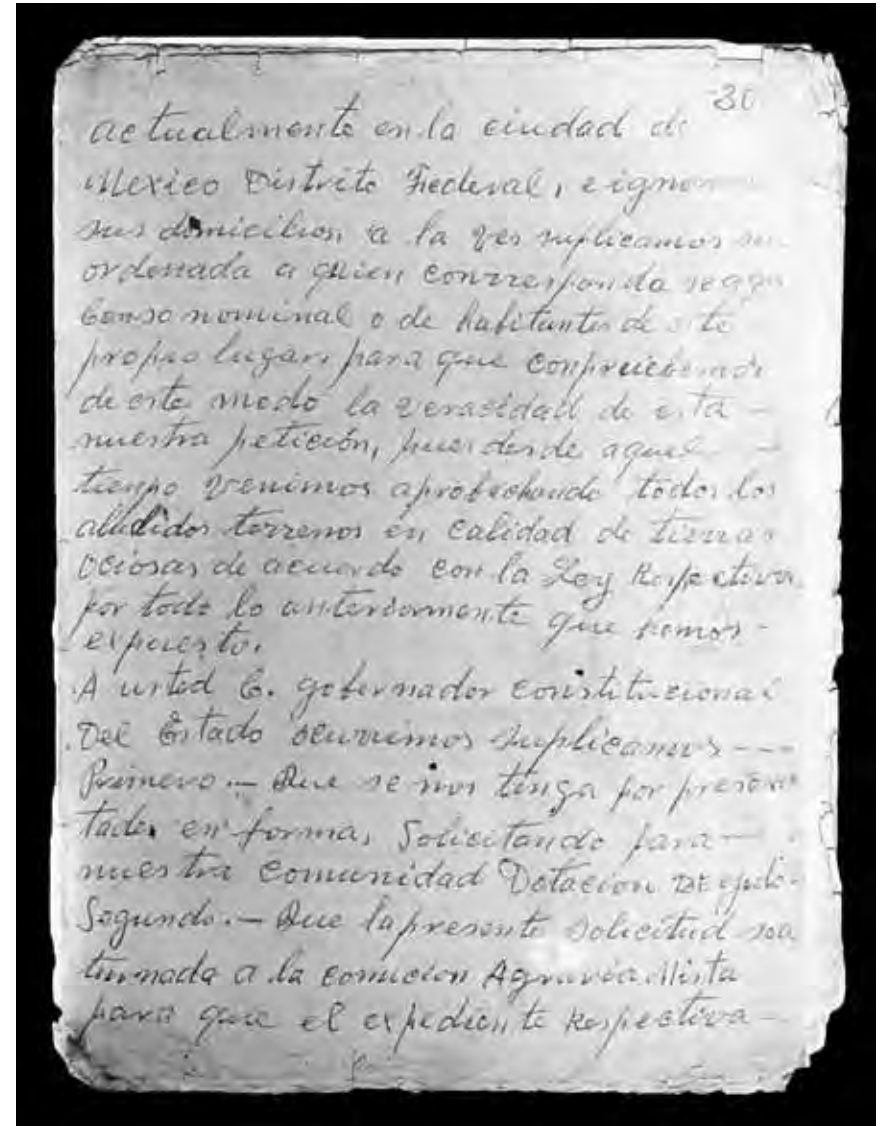 30
actualmente en la ciudad de
Mexico Distrito Federal, e
sus domicilios, a la ves suplicamos
ordenada a quien corresponda
Censo nominal o de habitantes de este
propio lugar, para que
de este modo la verasidad de esta —
nuestra petición, pues desde aquel — —
tienpo venimos aprobechando todos los
aludidos terrenos en Calidad de tierras
Ociosas de acuerdo con la Ley Respectiva
por todo lo anteriormente que hemos —
expuesto.
A usted C. gobernador constitucional
Del Estado ocurrimos suplicamos ---
Primero. — Que se nos tenga por presen
tados en forma, Solicitando para —
nuestra Comunidad Dotacion De
Segundo. — Que la presente solicitud sea
turnada a la comicion Agraria Mista
para que el expediente Respectiva —